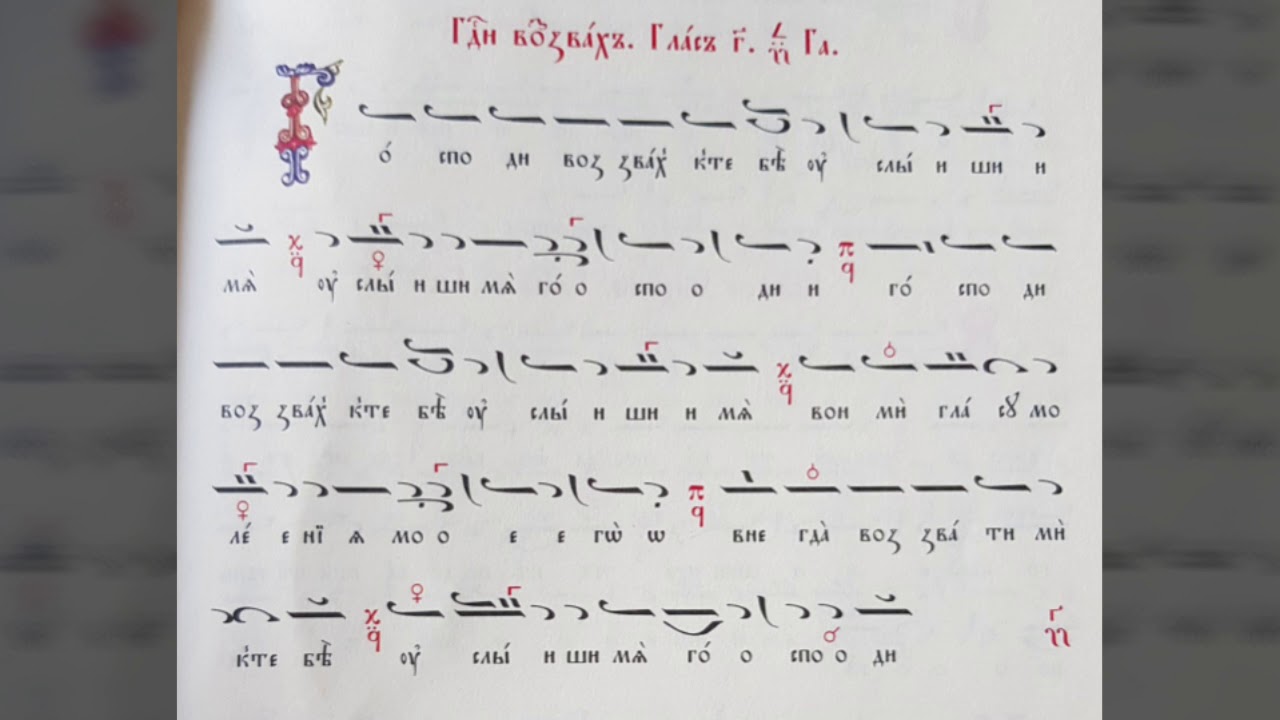 Гдⷭ҇и воззва́хъ. Гла́съ г҃. Га.
Го́ спо ди воз зва́х̾ к̾те бѣ̀ ᲂу҆ слы́ и ши и
мѧ̀ ᲂу҆ слы́ и ши мѧ̀ го́ о спо о ди и го́ спо ди
воз зва́х̾ к̾те бѣ̀ ᲂу҆ слы́ и ши и мѧ̀ вон мѝ гла́ сꙋ̀ мо
ле́ е нї ѧ мо о е е гѡ̀ ѡ вне гда̀ воз зва́ ти мѝ
к̾те бѣ̀ ᲂу҆ слы́ и ши мѧ̀ го́ о спо о ди